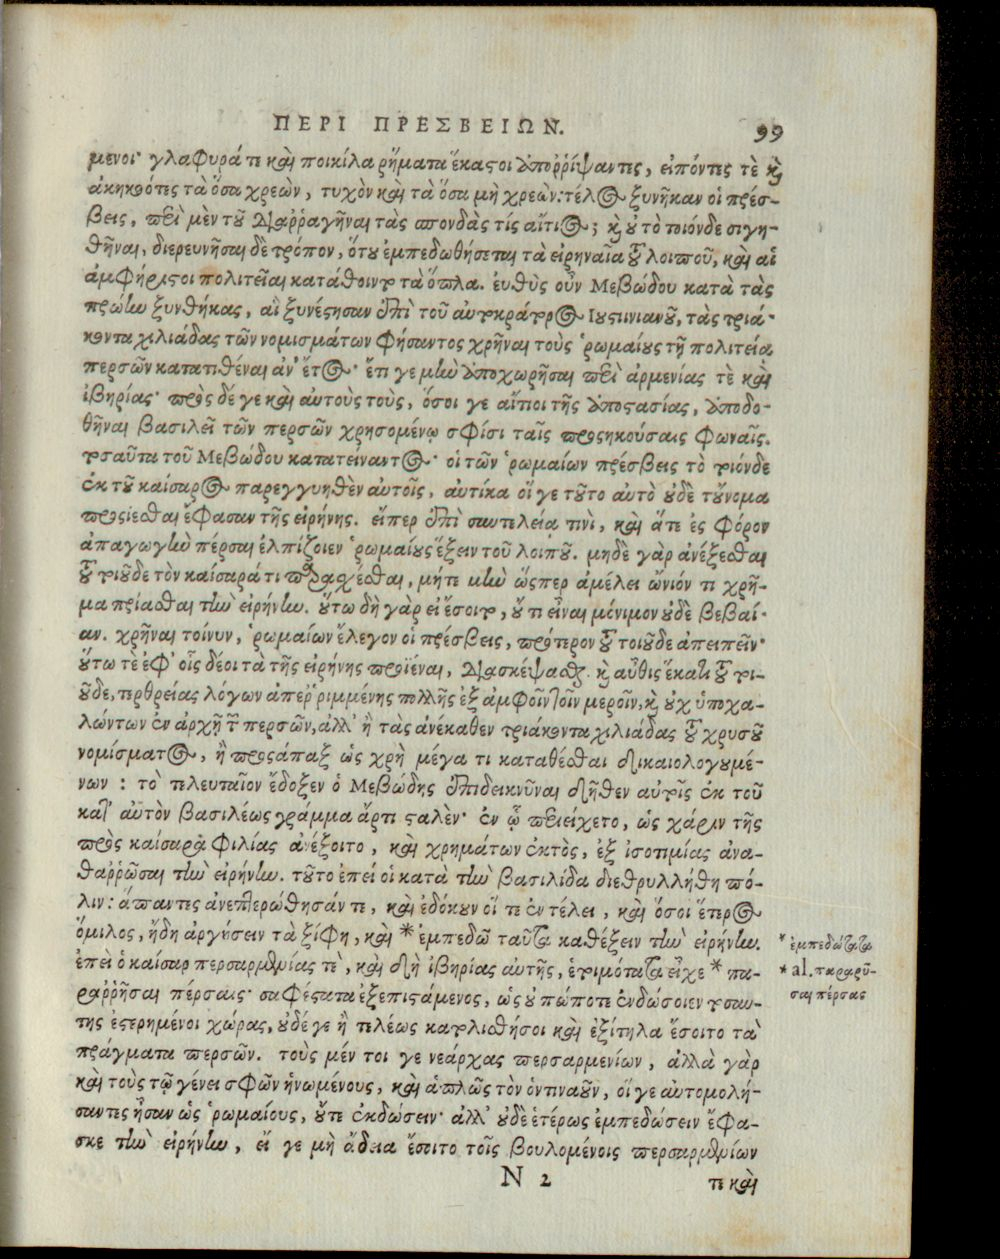 ΠΕΡΙ ΠΡΕΣΒΕΙΩΝ. 99
μενοι· γλαφυρά τε καὶ ποικίλα ρήματα ἕκαστοι ἀποῤῥίψαντες, εἰπόντες τὲ κὶ
ἀκηκοότες τὰ ὅσα χρεὼν, τυχὸν καὶ τὰ ὅσα μὴ χρεὼν: τέλος ξυνῆκαν οἱ πρέσ-
βεις, περὶ μὲν τοῦ διαῤῥαγῆναι τὰς σπονδὰς τίς αἴτιος; κὶ οὐ τὸ ποιόνδε σιγη-
θῆναι, διερευνῆσαι δὲ τρόπον, ὅτου ἐμπεδωθήσεται τὰ εἰρηναῖα τοῦ λοιποῦ, καὶ αἱ
ἀμφήριστοι πολιτεῖαι κατάθοιντο τὰ ὅπλα. εὐθὺς οὖν Μεβώδου κατὰ τὰς
πρώτην ξυνθήκας, αἳ ξυνέστησαν ἐπὶ τοῦ αὐτοκράτορος Ιουστινιανοῦ, τὰς τριά-
κοντα χιλιάδας τῶν νομισμάτων φήσαντος χρῆναι τοὺς ῥωμαίους τῇ πολιτείᾳ
περσῶν κατατιθέναι ἀν' ἔτος· ἔτι γε μὴν ἀποχωρῆσαι περὶ ἀρμενίας τὲ καὶ
ἰβηρίας· πρὸς δέ γε καὶ αὐτοὺς τοὺς, ὅσοι γε αἴτιοι τῆς ἀποστασίας, ἀποδο-
θῆναι βασιλεῖ τῶν περσῶν χρησομένῳ σφίσι ταῖς προσηκούσαις φωναῖς.
τοσαῦτα τοῦ Μεβώδου κατατείναντος· οἱ τῶν ῥωμαίων πρέσβεις τὸ τοιόνδε
ἐκ τοῦ καίσαρος παρεγγυηθὲν αὐτοῖς, αὐτίκα οἵ γε τοῦτο αὐτὸ οὐδὲ τοὔνομα
προσίεσθαι ἔφασαν τῆς εἰρήνης. εἴπερ ἐπὶ συντελείᾳ τινὶ, καὶ ἅτε ἐς φόρον
ἀπαγωγὴν πέρσαι ἐλπίζοιεν ῥωμαίους ἕξειν τοῦ λοιποῦ. μηδὲ γὰρ ἀνέξεσθαι
τοῦ τοιοῦδε τὸν καίσαρά τι παρασχέσθαι, μήτε μὴν ὥσπερ ἀμέλει ὤνιόν τι χρῆ-
μα πρίασθαι τὴν εἰρήνην. οὕτω δὴ γὰρ εἰ ἔσοιτο, οὔ τι εἶναι μένιμον οὐδὲ βεβαί-
αν. χρῆναι τοίνυν, ῥωμαίων ἔλεγον οἱ πρέσβεις, πρότερον τοῦ τοιοῦδε ἀπειπεῖν·
οὕτω τὲ ἐφ' οἷς δέοι τὰ τῆς εἰρήνης προϊέναι, διασκέψασθαι. κὶ αὖθις ἕκατι τοῦ τοι-
οῦδε, τερθρείας λόγων ἀπεῤῥιμμένης πολλῆς ἐξ ἀμφοῖν τοῖν μεροῖν, κὶ οὐχ ὑποχα-
λώντων ἐν ἀρχῇ τῶν περσῶν, ἀλλ' ἢ τὰς ἀνέκαθεν τριάκοντα χιλιάδας τοῦ χρυσοῦ
νομίσματος, ἢ προσάπαξ ὡς χρὴ μέγα τι καταθέσθαι δικαιολογουμέ-
νων : το τελευταῖον ἔδοξεν ὁ Μεβώδης ἐπιδεικνῦναι δῆθεν αὐτοῖς ἐκ τοῦ
κατ' αὐτὸν βασιλέως γράμμα ἄρτι σταλέν· ἐν ᾧ περιείχετο, ὡς χάριν τῆς
πρὸς καίσαρα φιλίας ἀνέξοιτο, καὶ χρημάτων ἐκτὸς, ἐξ ἰσοτιμίας ἀνα-
θαῤῥῶσαι τὴν εἰρήνην. τοῦτο ἐπεί οἱ κατὰ τὴν βασιλίδα διεθρυλλήθη πό-
λιν: ἅπαντες ἀνεπτερώθησάν τε, καὶ ἐδόκουν οἵ τε ἐν τέλει, καὶ ὅσοι ἕτερος
ὅμιλος, ἤδη ἀργήσειν τὰ ξίφη, καὶ * ἐμπεδῶ ταῦτα καθέξειν τὴν εἰρήνην.
ἐπεὶ ὁ καῖσαρ περσαρμενίας τὲ, καὶ δὴ ἰβηρίας αὐτῆς, ἑτοιμότατα εἶχε * πα-
ραῤῥῆσαι πέρσαις· σαφέστατα ἐξεπιστάμενος, ὡς οὐπώποτε ἐνδώσοιεν τοσαύ-
της ἐστερημένοι χώρας, οὐδέ γε ἢ τελέως κατολισθήσοι καὶ ἐξίτηλα ἔσοιτο τὰ
πράγματα περσῶν. τοὺς μέν τοι γε νεάρχας περσαρμενίων, ἀλλὰ γὰρ
καὶ τοὺς τῷ γένει σφῶν ἡνωμένους, καὶ ἁπλῶς τὸν ὁντιναοῦν, οἵ γε αὐτομολή-
σαντες ἦσαν ὡς ῥωμαίους, οὔτε ἐκδώσειν· ἀλλ' οὐδὲ ἑτέρως ἐμπεδώσειν ἔφα-
σκε τὴν εἰρήνην, εἴ γε μὴ ἄδεια ἔσοιτο τοῖς βουλομένοις περσαρμενίων
* ἐμπεδώτατα
* al. παραρῦ-
σαι πέρσας
N 2 τε καὶ